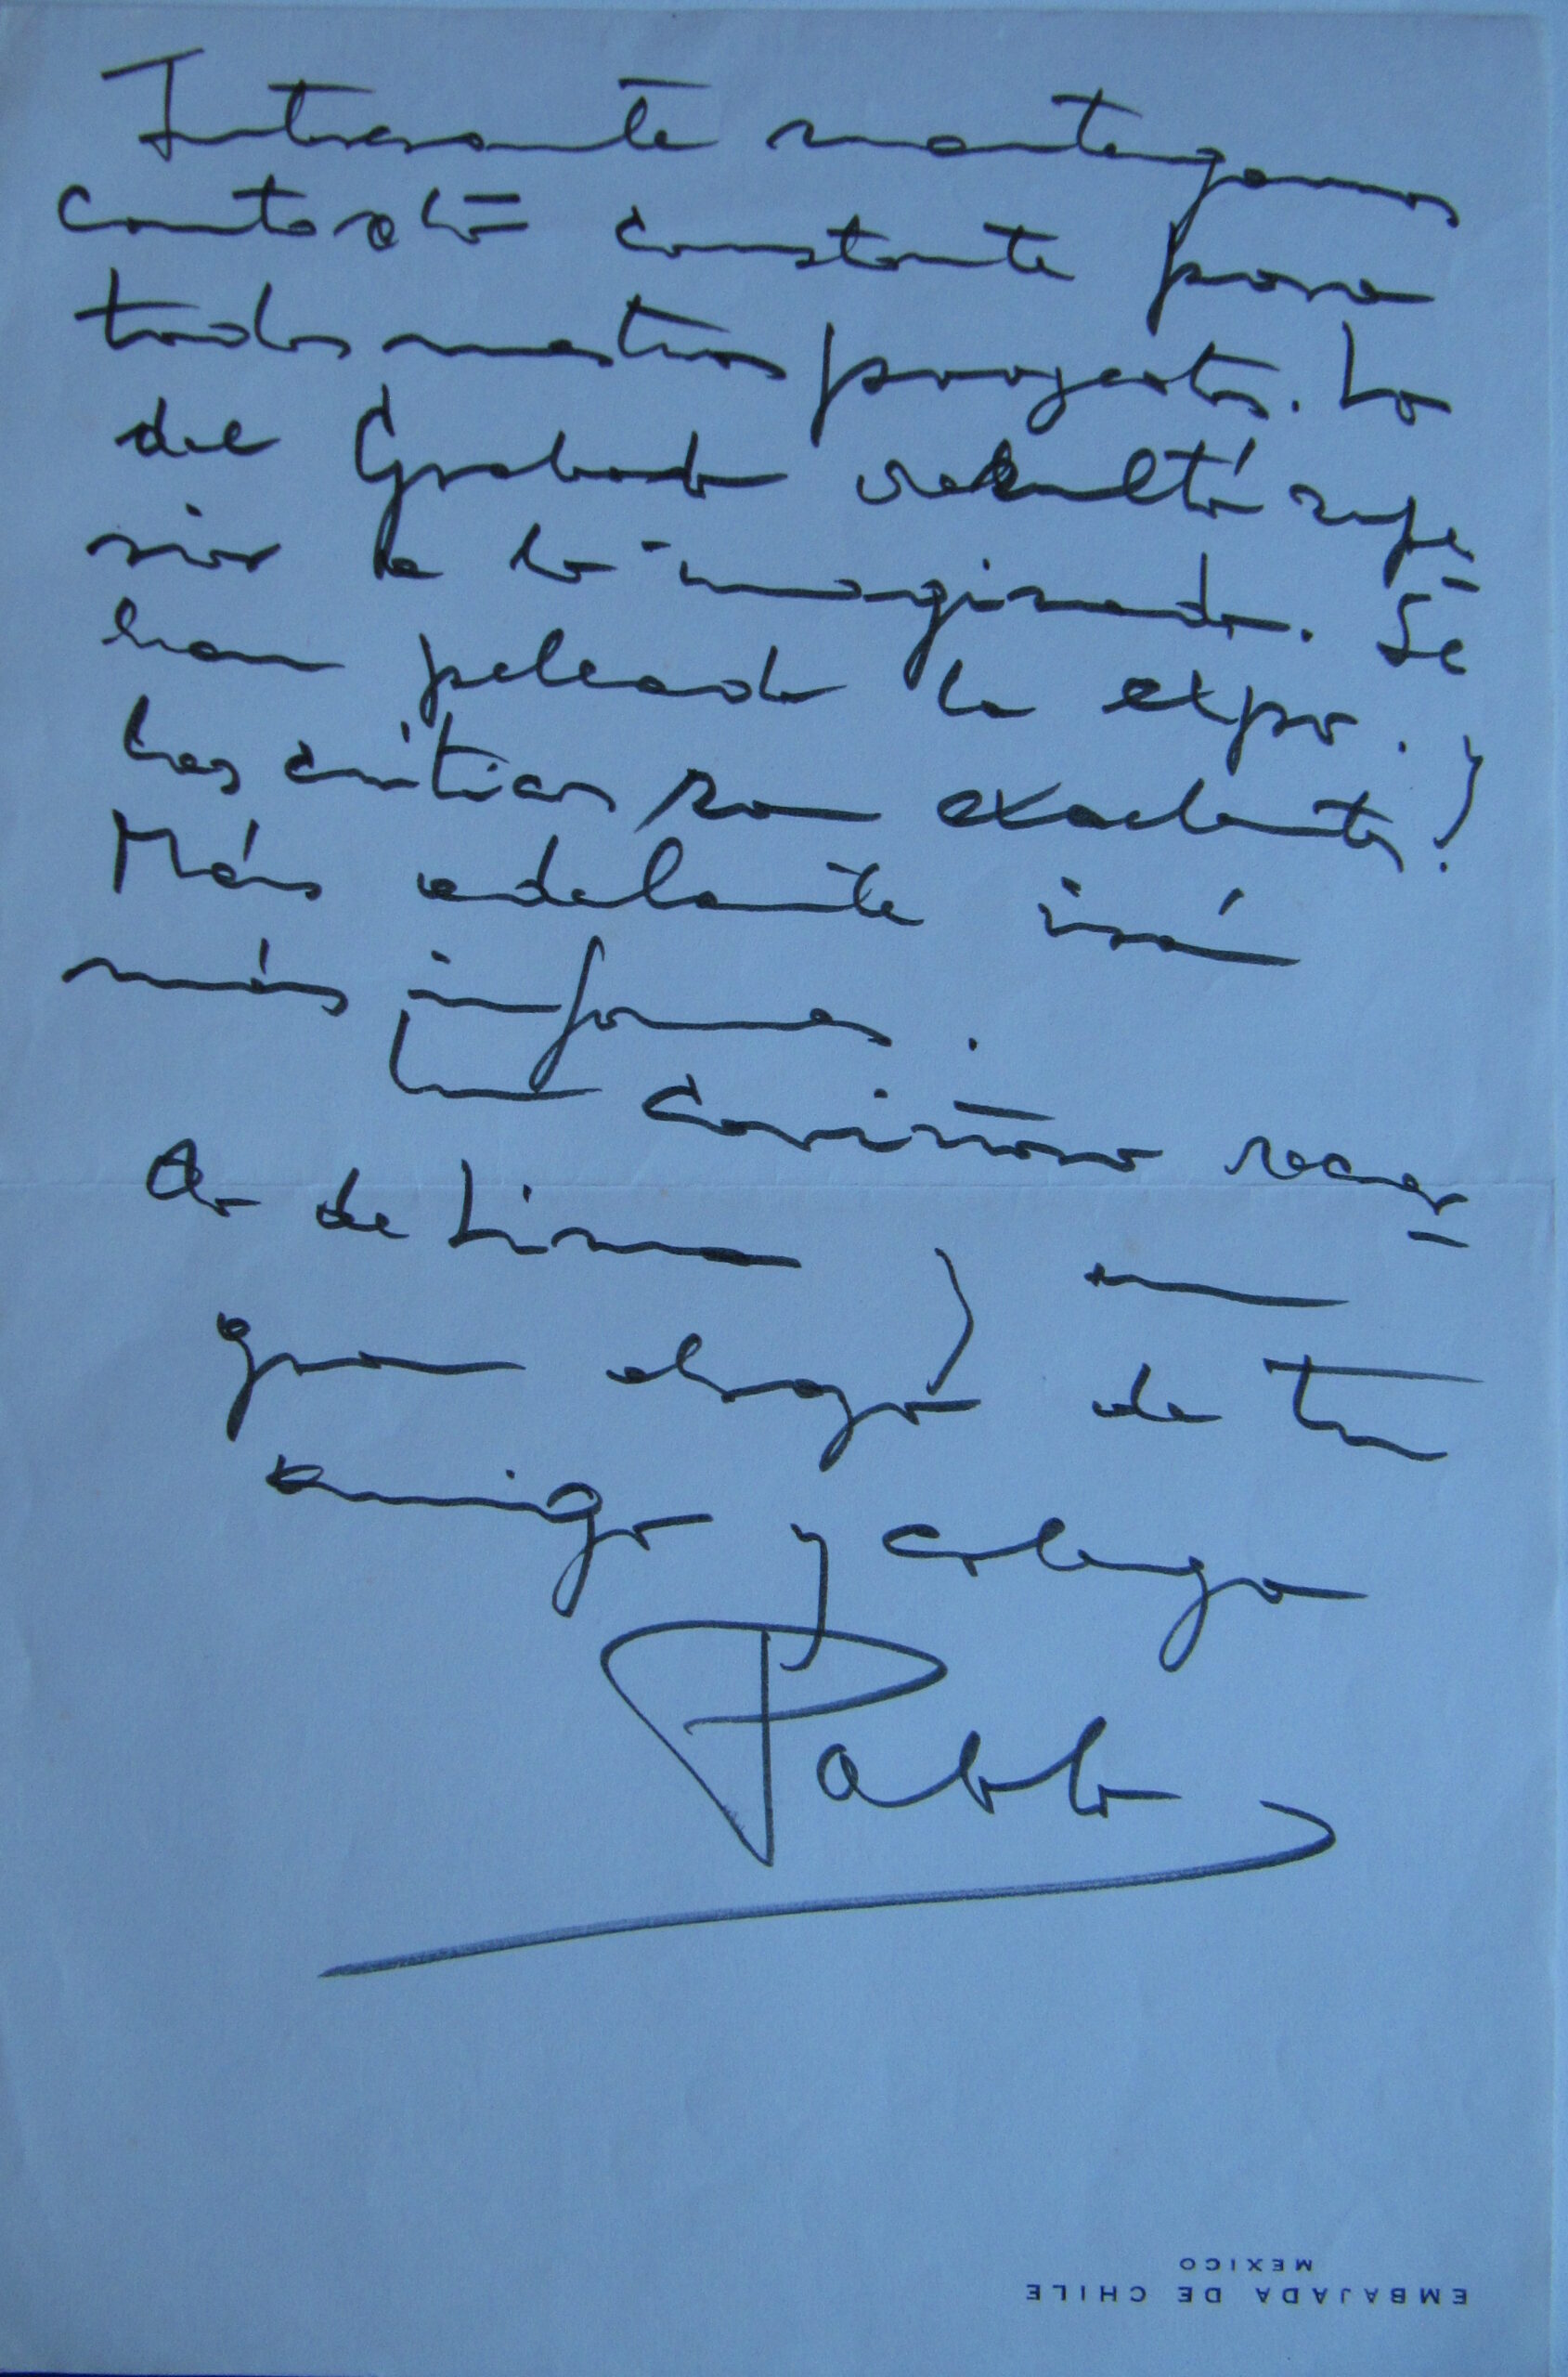 Interesante mantengamos
contacto constante para
todos nuestros proyectos. Lo
del Grabado resultó supe-
rior a lo imaginado. Se
han peleado la expo. y
las críticas son excelentes!
Más adelante irá
más informes.
Un cariñoso recuer-
do de Lima y un
gran abrazo de tu
amigo y colega
Pablo
EMBAJADA DE CHILE
MEXICO